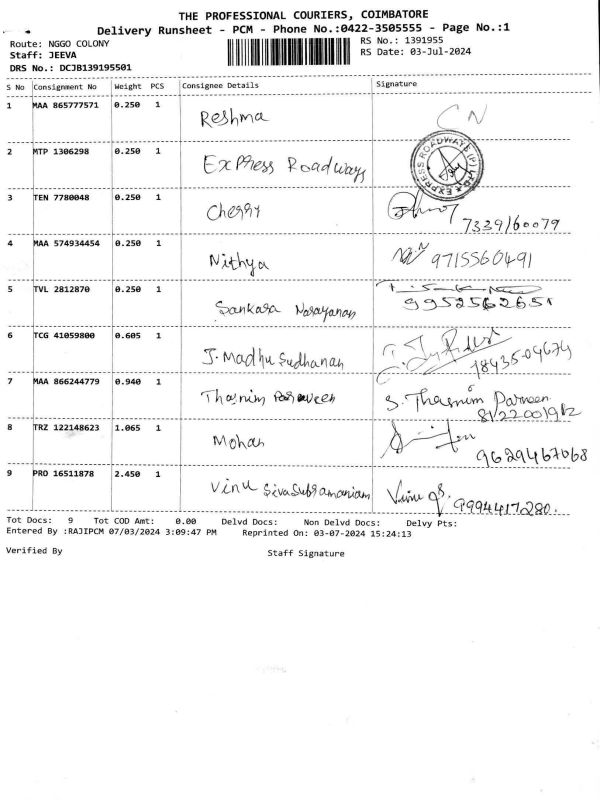 THE PROFESSIONAL COURIERS, COIMBATORE
Delivery Runsheet - PCM - Phone No.:0422-3505555 - Page No.:1
Route: NGGO COLONY
RS No.: 1391955
Staff: JEEVA
RS Date: 03-Jul-2024
DRS No.: DCJB139195501
S No Consignment No Weight PCS Consignee Details Signature
1 MAA 865777571 0.250 1 Reshma CN
2 MTP 1306298 0.250 1 Express Roadways
EXPRESS ROADWAYS (P) LTD
3 TEN 7780048 0.250 1 Cherry
7339160079
4 MAA 574934454 0.250 1 Nithya 9715560491
5 TVL 2812870 0.250 1 Sankara Narayanan
9952562651
6 TCG 41059800 0.605 1 J. Madhu Sudhanan
7 MAA 866244779 0.940 1 Thasnim Parveen S. Thasnim Parveen
8 TRZ 122148623 1.065 1 Mohan
9629467068
9 PRO 16511878 2.450 1 Vinu Sivasubramaniam Vinu
9994417280.
Tot Docs: 9 Tot COD Amt: 0.00 Delvd Docs: Non Delvd Docs: Delvy Pts:
Entered By :RAJIPCM 07/03/2024 3:09:47 PM Reprinted On: 03-07-2024 15:24:13
Verified By Staff Signature